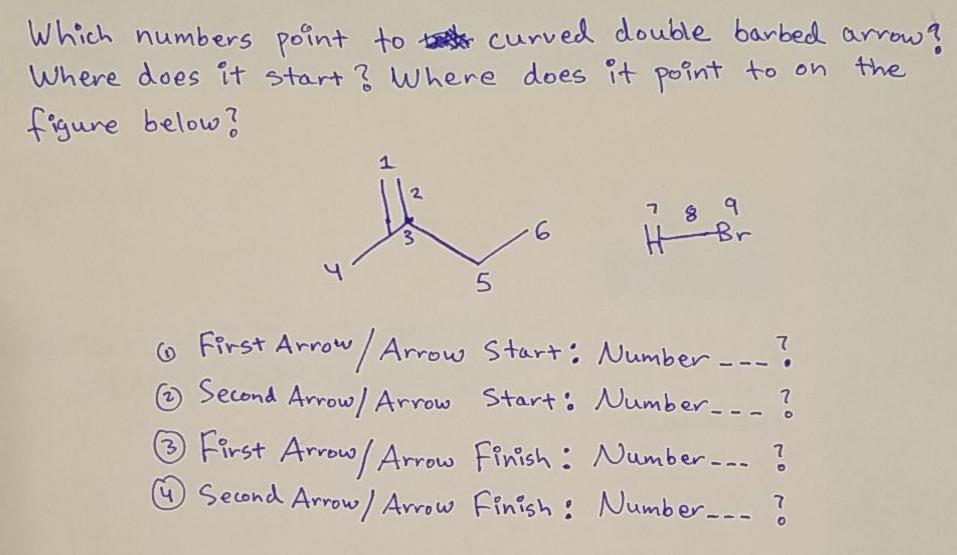 Which numbers point to curved double barbed arrow?
Where does it start? Where does it point to on the
figure below?
1
2
3
4
5
6
7 8 9
H Br
① First Arrow/Arrow Start: Number ---?
② Second Arrow/Arrow Start: Number---?
③ First Arrow/Arrow Finish: Number---?
④ Second Arrow/Arrow Finish: Number---?